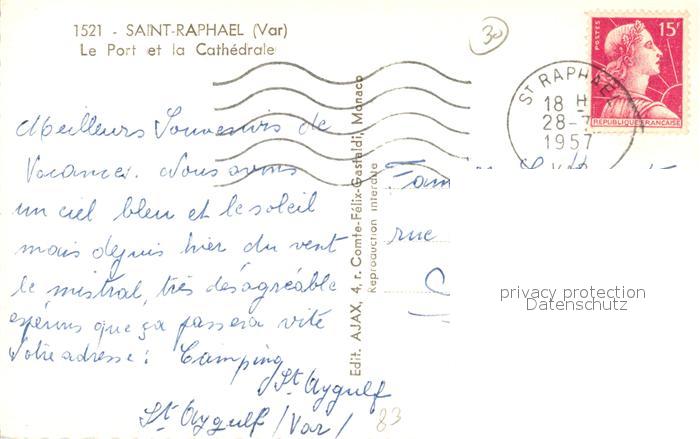 1521 - SAINT-RAPHAEL (Var)
Le Port et la Cathédrale
30
POSTES
15F
REPUBLIQUE FRANÇAISE
ST RAPHAEL
18 H
28-7
1957
Meilleurs Souvenirs de
Vacances. Nous avons
un ciel bleu et le soleil
mais depuis hier du vent
le mistral, très désagréable
espérons que ça passera vite
Votre adresse : Camping
St Aygulf
St Aygulf (Var)
83
Edit. AJAX, 4, r. Comte-Félix-Gastaldi, Monaco
Reproduction interdite
Fam
rue
privacy protection
Datenschutz